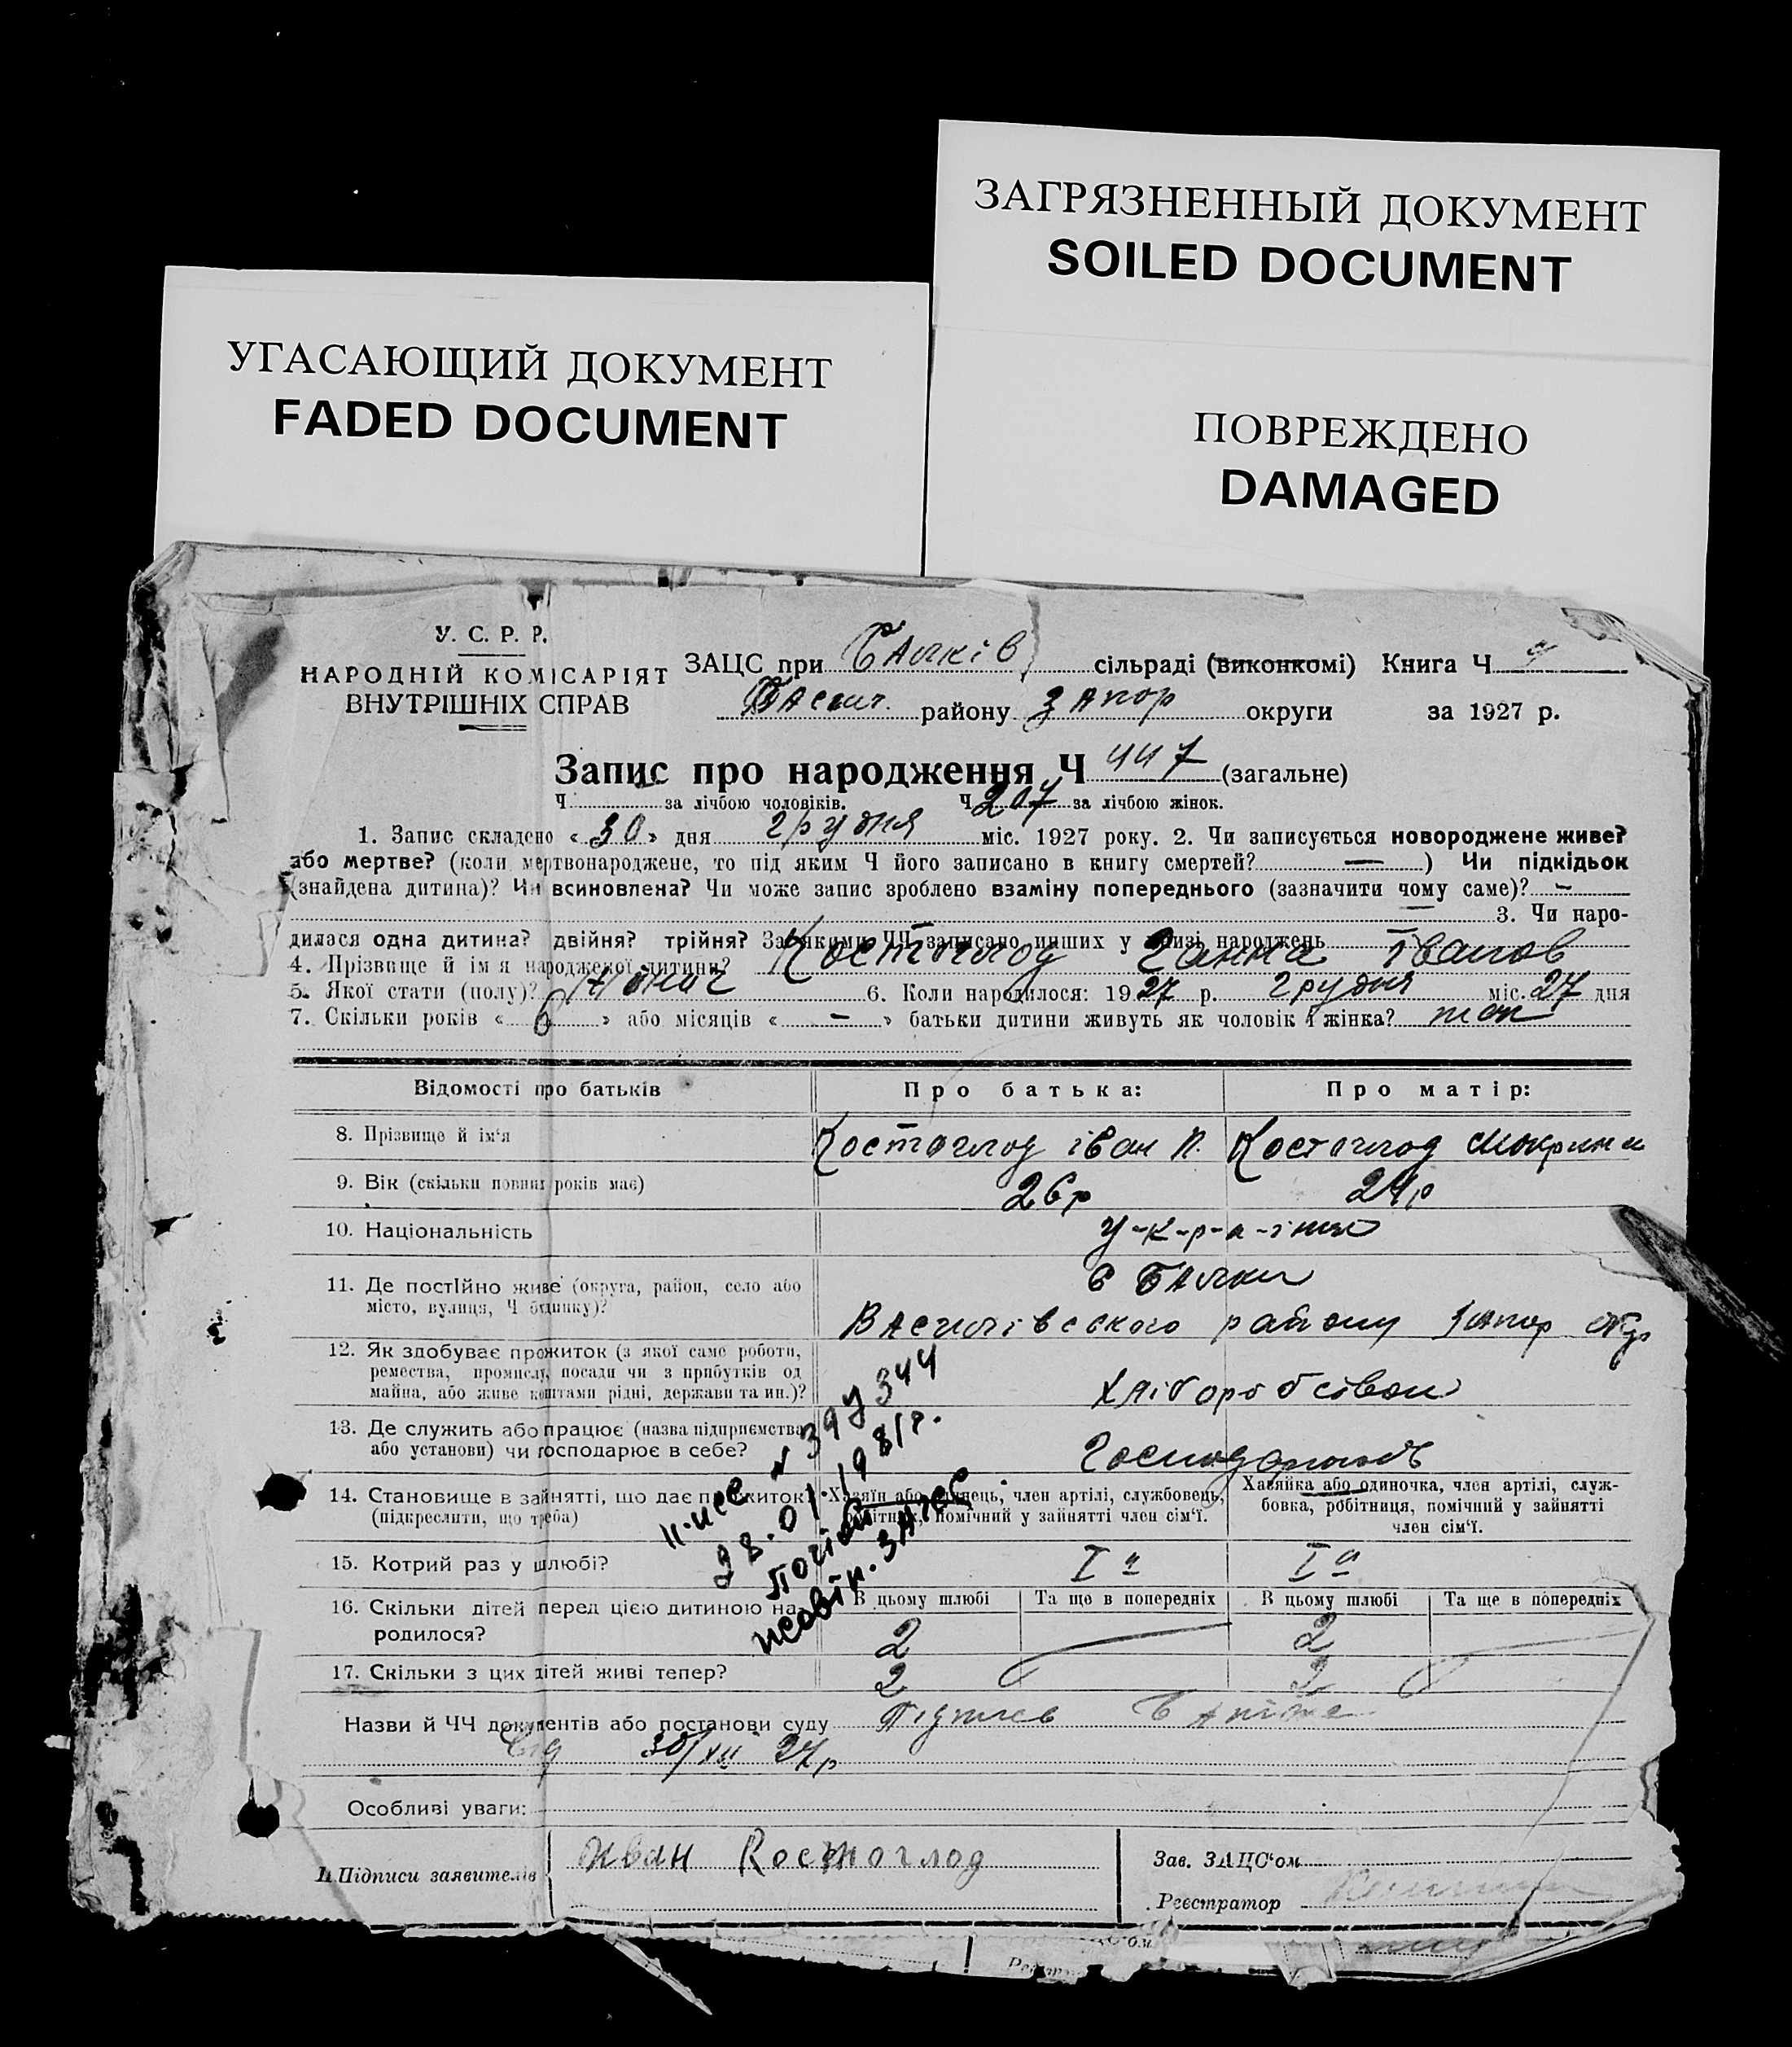 ЗАГРЯЗНЕННЫЙ ДОКУМЕНТ
SOILED DOCUMENT
УГАСАЮЩИЙ ДОКУМЕНТ
FADED DOCUMENT
ПОВРЕЖДЕНО
DAMAGED
У. С. Р. Р.
НАРОДНІЙ КОМІСАРІЯТ
ВНУТРІШНІХ СПРАВ
ЗАЦС при Балків сільраді (виконкомі) Книга Ч
Васил. району Запор округи за 1927 р.
Запис про народження Ч 447 (загальне)
Ч за лічбою чоловіків. Ч 207 за лічбою жінок.
1. Запис складено «30» дня грудня міс. 1927 року. 2. Чи записується новороджене живе?
або мертве? (коли мертвонароджене, то під яким Ч його записано в книгу смертей? — ) Чи підкідьок
(знайдена дитина)? Чи всиновлена? Чи може запис зроблено взаміну попереднього (зазначити чому саме)? —
— 3. Чи наро-
дилася одна дитина? двійня? трійня? За якими ЧЧ записано инших у книзі народжень —
4. Прізвище й ім'я народженої дитини? Костоглод Ганна Іванов
5. Якої стати (полу)? Жіноч 6. Коли народилося: 1927 р. грудня міс. 27 дня
7. Скільки років «6» або місяців « — » батьки дитини живуть як чоловік і жінка? так
Відомості про батьків Про батька: Про матір:
8. Прізвище й ім'я Костоглод Іван П. Костоглод Мокрина
9. Вік (скільки повних років має) 26 р 24 р
10. Національність у-к-р-а-їнці
11. Де постійно живе (округа, район, село або
місто, вулиця, Ч будинку)?
с Балки
Василівського району Запор Окр
12. Як здобуває прожиток (з якої саме роботи,
ремества, промислу, посади чи з прибутків од
майна, або живе коштами рідні, держави та ин.)?
Хліборобством
13. Де служить або працює (назва підприємства
або установи) чи господарює в себе?
Господарюють
14. Становище в занятті, що дає прожиток?
(підкреслити, що треба)
Хазяїн або одинець, член артілі, службовець,
робітник, помічний у зайнятті член сім'ї.
Хазяйка або одиночка, член артілі, служ-
бовка, робітниця, помічний у зайнятті
член сім'ї.
15. Котрий раз у шлюбі? I й I а
16. Скільки дітей перед цією дитиною на-
родилося?
В цьому шлюбі Та ще в попередніх В цьому шлюбі Та ще в попередніх
2 2
17. Скільки з цих дітей живі тепер? 2 2
№ 394344
28.01.1981р.
ЗАГС
Назви й ЧЧ документів або постанови суду
від 30/XII 27 р
Особливі уваги:
Підписи заявителів Иван Костоглод
Зав. ЗАЦС'ом
Реєстратор